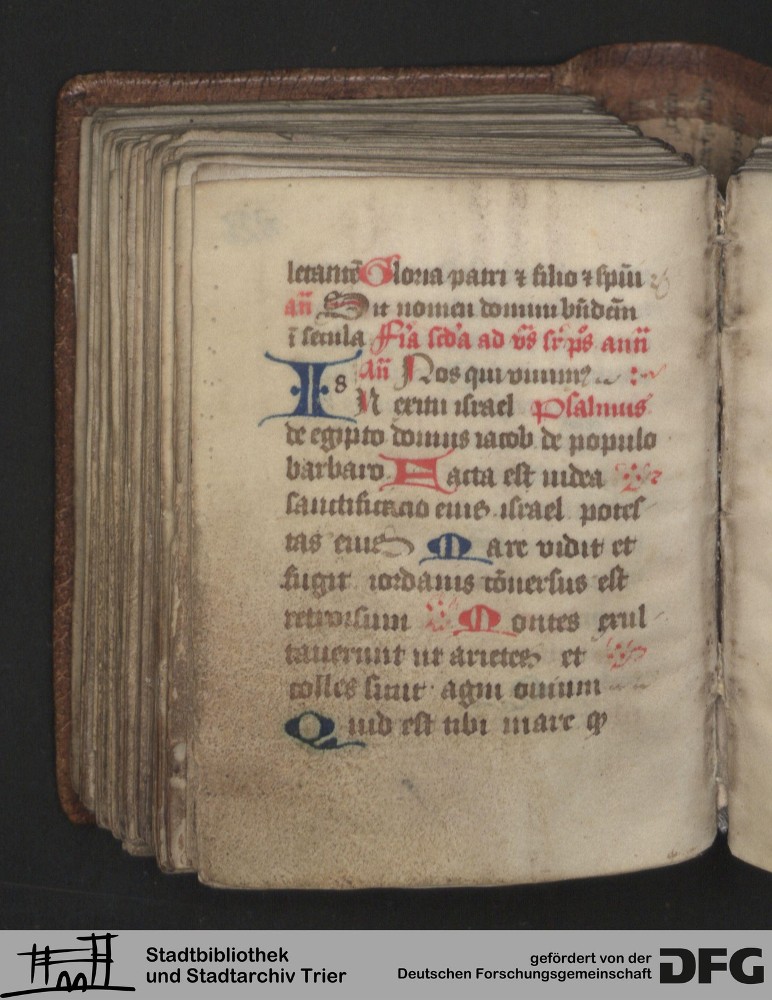 letantē Gloria patri ⁊ filio ⁊ spūi
añ Sit nomen domini būdcm̄
ī secula Fīa scd'a ad vs̄ sr̄ ps̄ añ
añ Nos qui viuim9
IN exitu israel Psalmus
de egipto domus iacob de populo
barbaro Facta est iudea
sanctificacio eius israel potes
tas eius Mare vidit et
fugit iordanis cōuersus est
retrorsum Montes exul
tauerunt ut arietes et
colles sicut agni ouium
Quid est tibi mare ꝙ
Stadtbibliothek
und Stadtarchiv Trier
gefördert von der
Deutschen Forschungsgemeinschaft
DFG